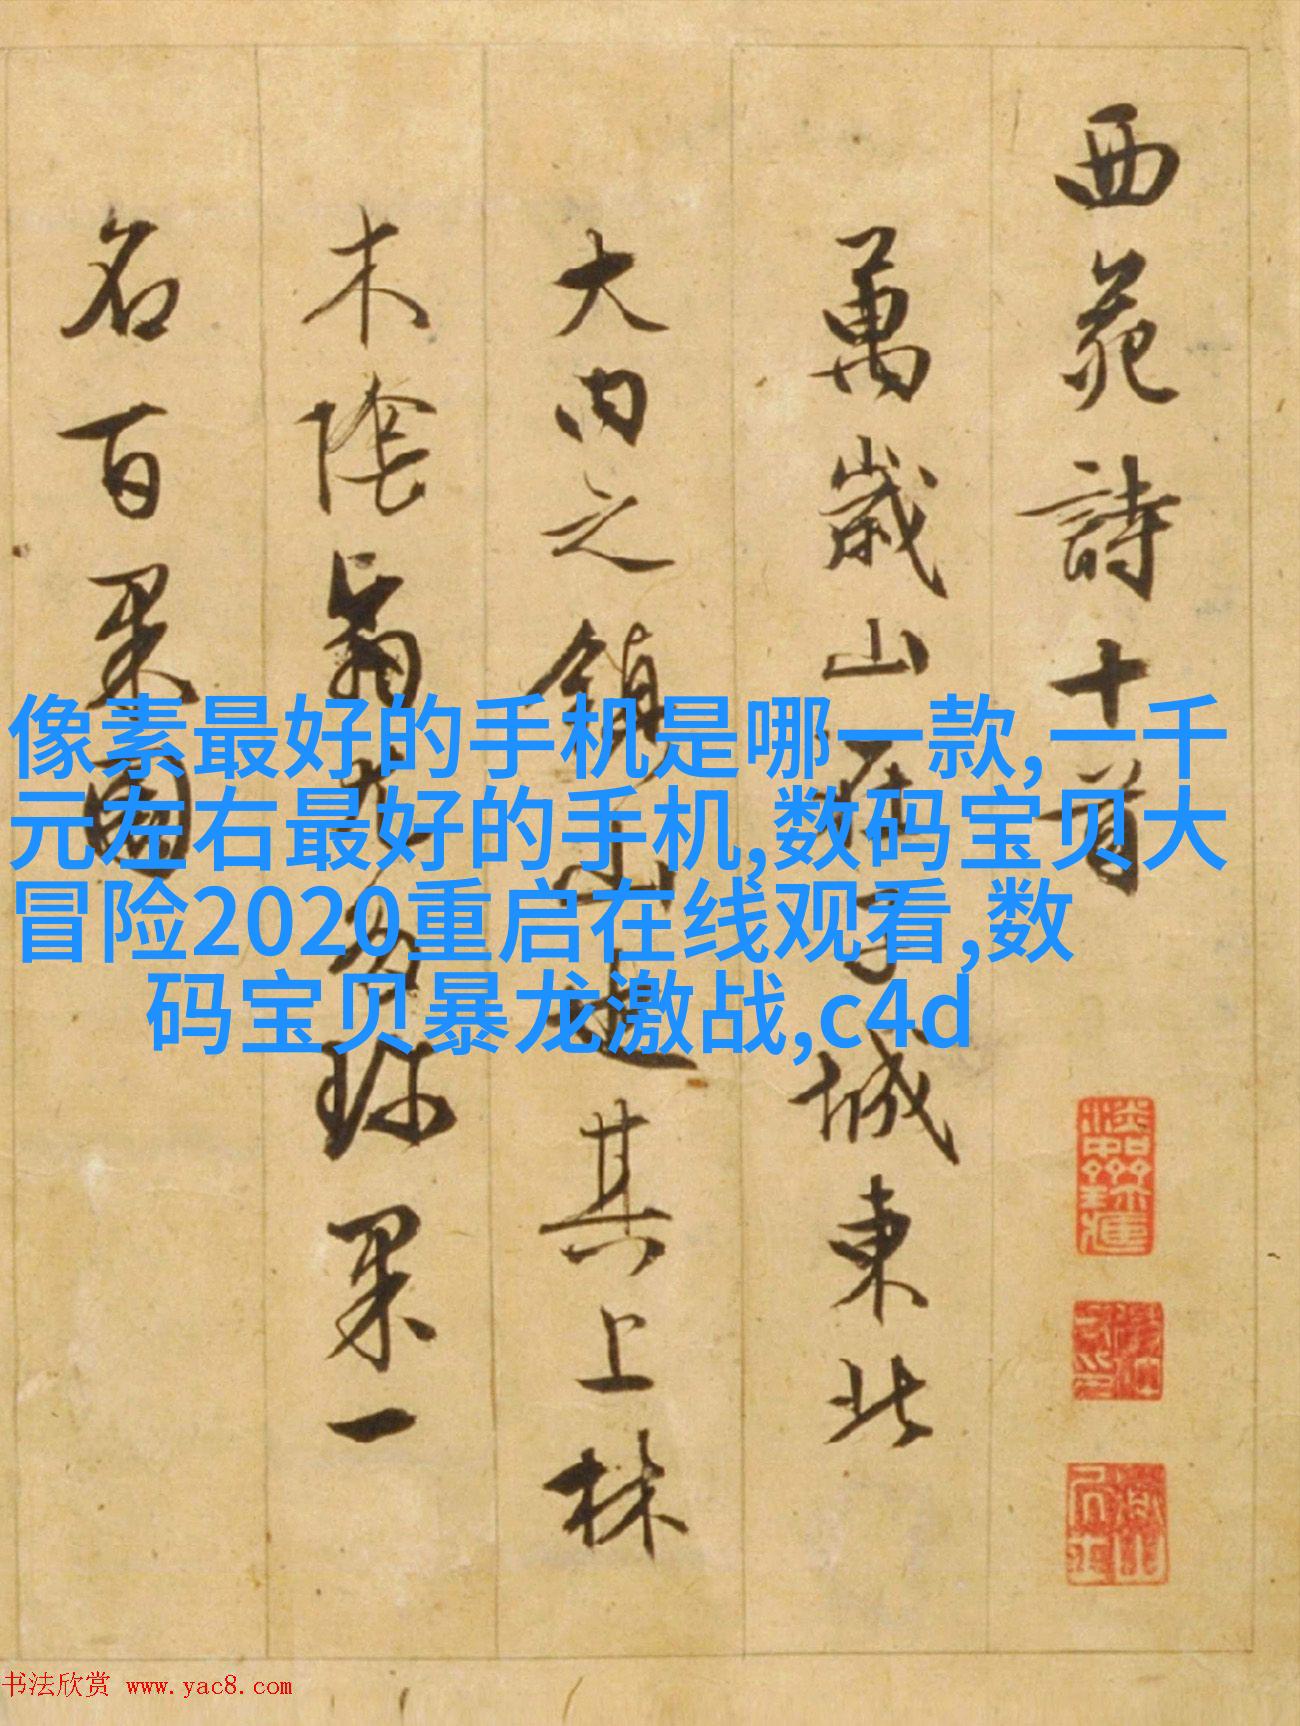 西苑詩十首
萬歲山在子城東北
大内之鎮山也其上林
木陰翳尤多珎果一
名百果園
像素最好的手机是哪一款,一千
元左右最好的手机,数码宝贝大
冒险2020重启在线观看,数
码宝贝暴龙激战,c4d
书法欣赏 www.yac8.com